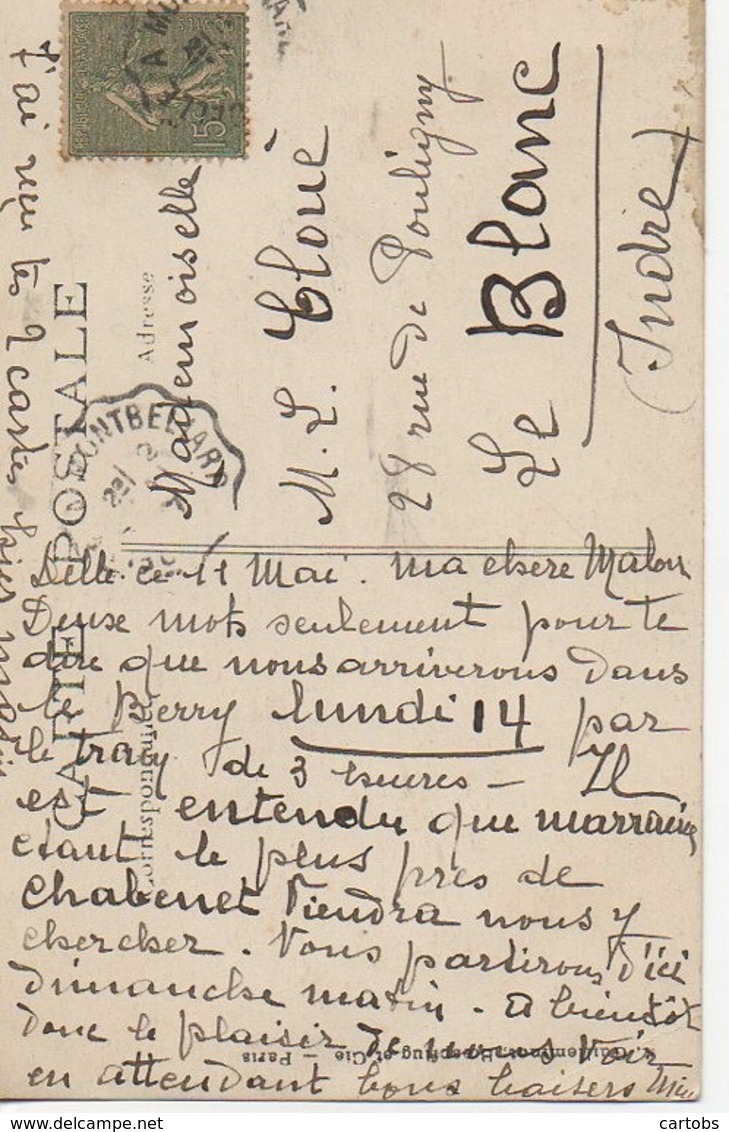 CARTE POSTALE
Correspondance
Adresse
Mademoiselle
M. L. Cloué
28 rue de Pouligny
Le Blanc
(Indre)
MONTBELIARD
15
J'ai reçu tes 2 cartes hier
Delle ce 11 Mai. Ma chère Malou
Deux mots seulement pour te
dire que nous arriverons dans
le Berry lundi 14 par
le train de 3 heures – Il
est entendu que marraine
étant le plus près de
Chabenet viendra nous y
chercher. Nous partirons d'ici
dimanche matin – A bientôt
donc le plaisir de vous voir
en attendant bons baisers
Cie – Paris
cartobs